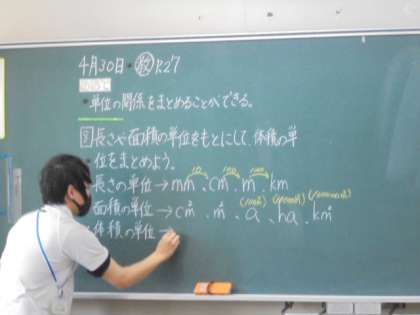 4月30日 教 P.27
・単位の関係をまとめることができる。
長さや面積の単位をもとにして、体積の単
位をまとめよう。
10 100 1000
長さの単位→mm、cm、m、km
(100m²) (10000m²) (1000000m²)
面積の単位→cm²、m²、a、ha、km²
体積の単位→